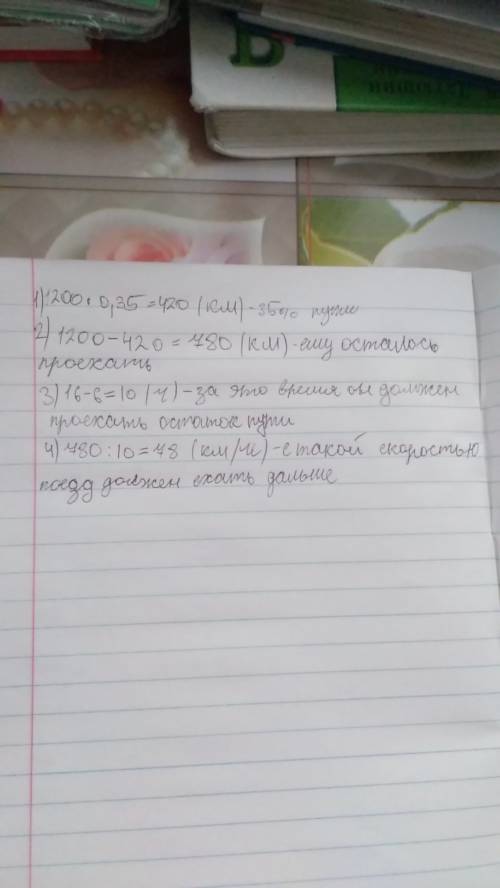 1) 1200 · 0,35 = 420 (км) - 35% пути
2) 1200 - 420 = 780 (км) - ему осталось
проехать
3) 16 - 6 = 10 (ч) - за это время он должен
проехать остаток пути
4) 780 : 10 = 78 (км/ч) - с такой скоростью
поезд должен ехать дальше